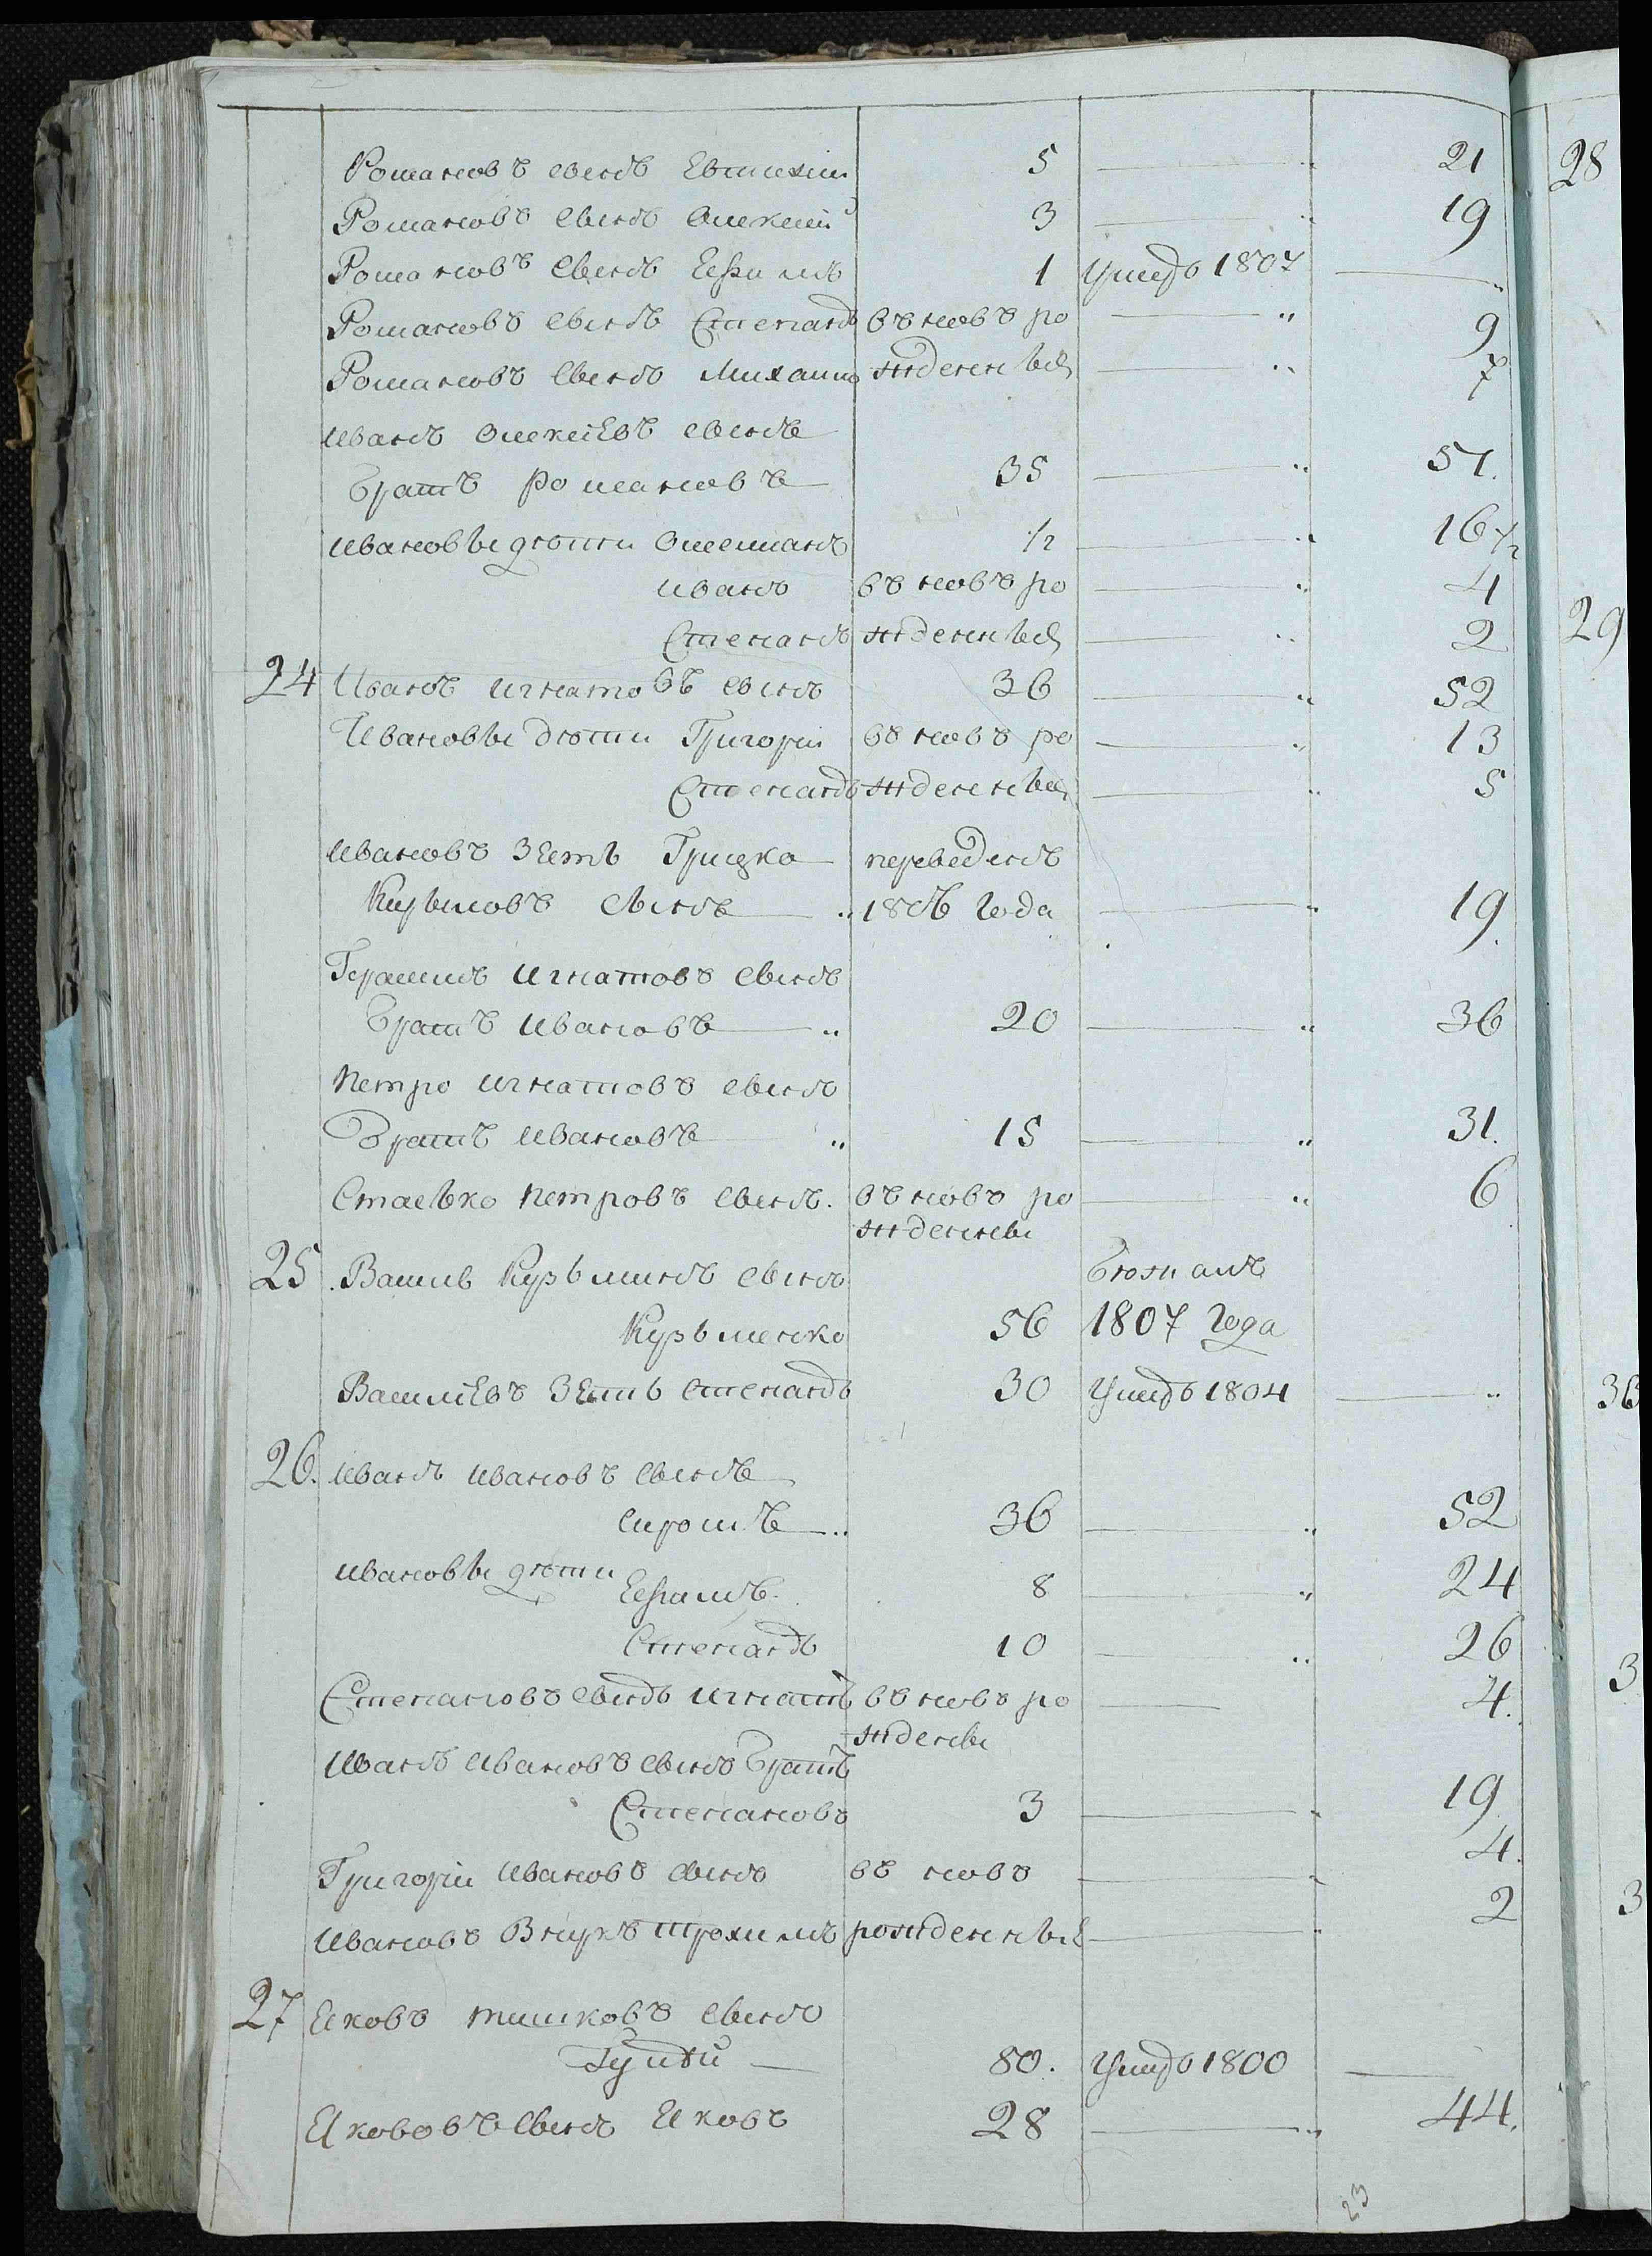 Романовъ сынъ Евтихій 5 21
Романовъ сынъ Олексій 3 19
Романовъ сынъ Ефимъ 1 умеръ 1807
Романовъ сынъ Степанъ въ новъ ро 9
Романовъ сынъ Михаило жденныя 7
Иванъ Олексіевъ сынъ
братъ Романовъ 35 51.
Ивановы дѣти Омелianъ 1/2 16 1/2
Иванъ въ новъ ро 4
Степанъ жденныя 2
24 Иванъ Игнатовъ сынъ 36 52
Ивановы дѣти Григорій въ новъ ро 13
Степанъ жденныя 5
Ивановъ зять Грицко переведенъ
сынъ 18 года 19
Герасимъ Игнатовъ сынъ
братъ Ивановъ 20 36
Петро Игнатовъ сынъ
братъ Ивановъ 15 31.
Стасько Петровъ сынъ. въ новъ ро 6
жденны
25 Василь Кузьминъ сынъ бѣжалъ
Кузьменко 56 1807 года
Василіевъ зять Степанъ 30 умеръ 1804
26. Иванъ Ивановъ сынъ
36 52
Ивановы дѣти Ефимъ 8 24
Степанъ 10 26
Степановъ сынъ Игнатъ въ новъ ро 4.
ждены
Иванъ Ивановъ сынъ братъ
Степановъ 3 19
Григорій Ивановъ сынъ въ новъ 4.
Ивановъ внукъ Трохимъ рожденные 2
27 Яковъ Тишковъ сынъ
80. умеръ 1800
Якововъ сынъ Яковъ 28 44.
23
28
29
30
3
3